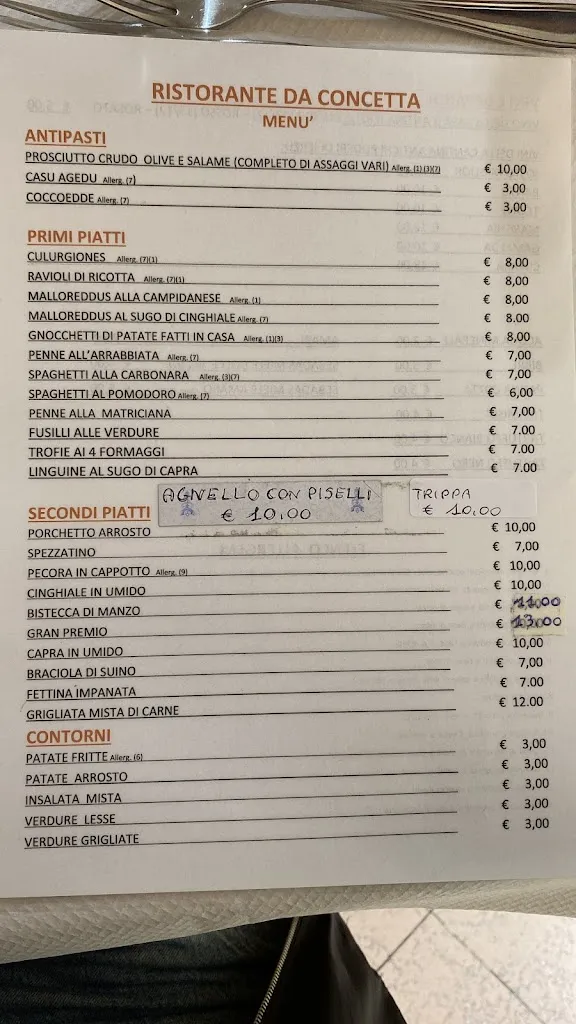 RISTORANTE DA CONCETTA
MENU'
ANTIPASTI
PROSCIUTTO CRUDO OLIVE E SALAME (COMPLETO DI ASSAGGI VARI) Allerg. (1)(3)(7) € 10,00
CASU AGEDU Allerg. (7) € 3,00
COCCOEDDE Allerg. (7) € 3,00
PRIMI PIATTI
CULURGIONES Allerg. (7)(1) € 8,00
RAVIOLI DI RICOTTA Allerg. (7)(1) € 8,00
MALLOREDDUS ALLA CAMPIDANESE Allerg. (1) € 8,00
MALLOREDDUS AL SUGO DI CINGHIALE Allerg. (7) € 8.00
GNOCCHETTI DI PATATE FATTI IN CASA Allerg. (1)(3) € 8,00
PENNE ALL'ARRABBIATA Allerg. (7) € 7,00
SPAGHETTI ALLA CARBONARA Allerg. (3)(7) € 7,00
SPAGHETTI AL POMODORO Allerg. (7) € 6,00
PENNE ALLA MATRICIANA € 7,00
FUSILLI ALLE VERDURE € 7.00
TROFIE AI 4 FORMAGGI € 7.00
LINGUINE AL SUGO DI CAPRA € 7.00
AGNELLO CON PISELLI TRIPPA
€ 10.00 € 10,00
SECONDI PIATTI
PORCHETTO ARROSTO € 10,00
SPEZZATINO € 7,00
PECORA IN CAPPOTTO Allerg. (9) € 10,00
CINGHIALE IN UMIDO € 10,00
BISTECCA DI MANZO € 11.00
GRAN PREMIO € 13.00
CAPRA IN UMIDO € 10,00
BRACIOLA DI SUINO € 7,00
FETTINA IMPANATA € 7.00
GRIGLIATA MISTA DI CARNE € 12.00
CONTORNI
PATATE FRITTE Allerg. (6) € 3,00
PATATE ARROSTO € 3,00
INSALATA MISTA € 3,00
VERDURE LESSE € 3,00
VERDURE GRIGLIATE € 3,00